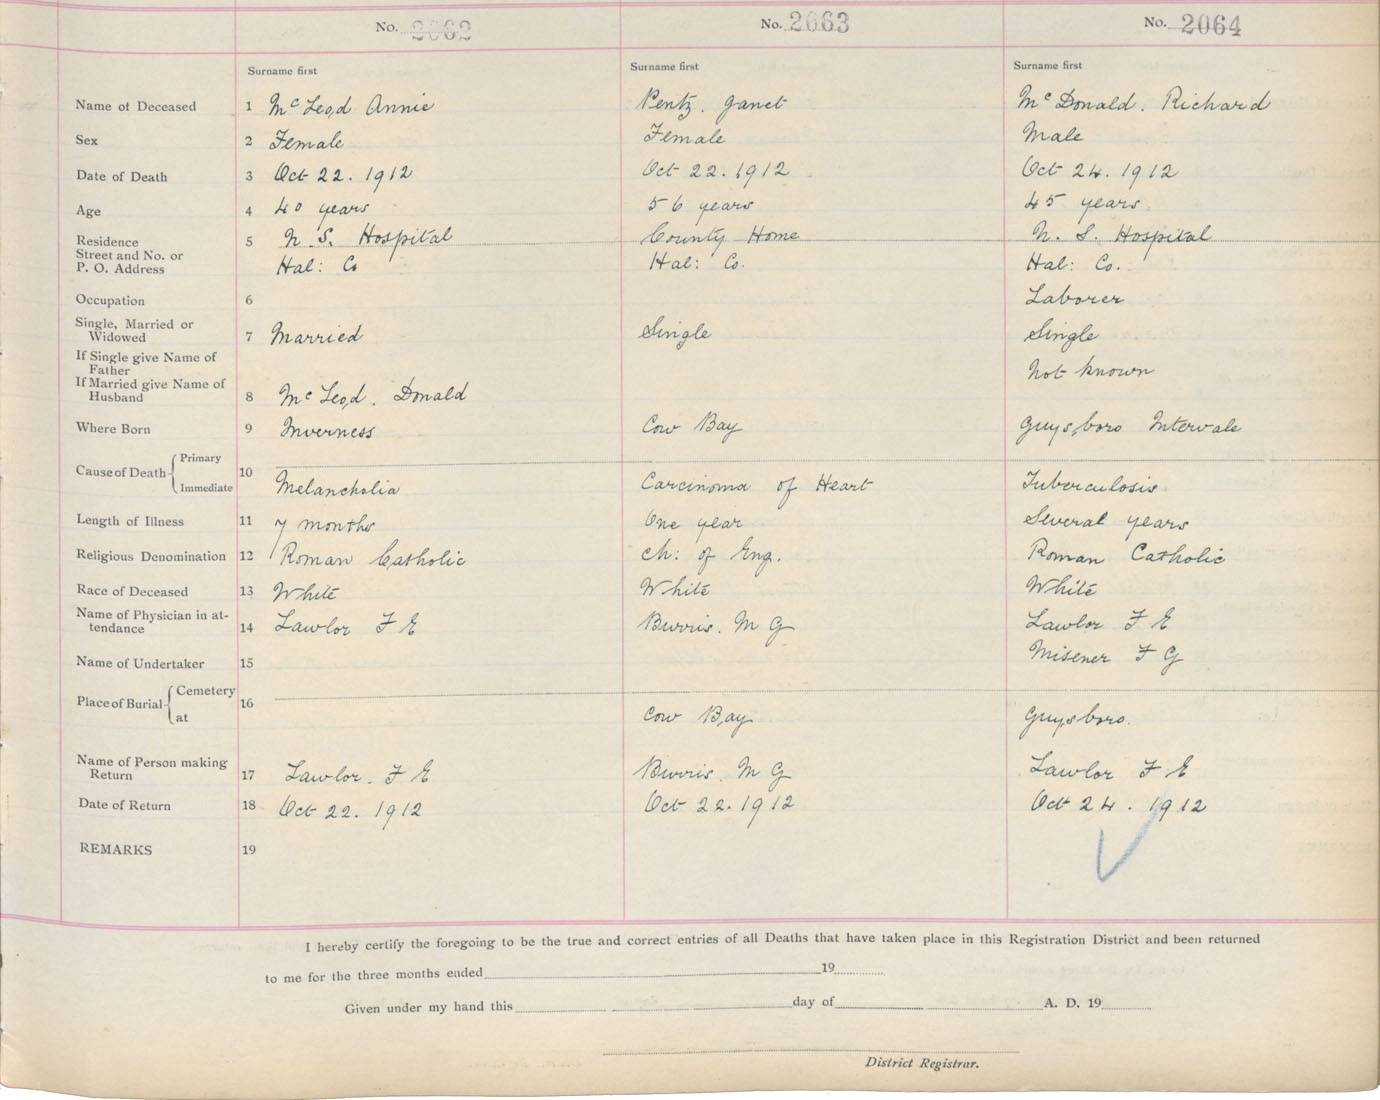 No. 2062 No. 2063 No. 2064
Surname first Surname first Surname first
Name of Deceased 1 McLeod Annie Pentz. Janet McDonald. Richard
Sex 2 Female Female Male
Date of Death 3 Oct 22. 1912 Oct 22. 1912 Oct 24. 1912
Age 4 40 years 56 years 45 years
Residence 5 N. S. Hospital County Home N. S. Hospital
Street and No. or
P. O. Address Hal: Co Hal: Co. Hal: Co.
Occupation 6 Laborer
Single, Married or
Widowed 7 Married Single Single
If Single give Name of
Father Not known
If Married give Name of
Husband 8 McLeod. Donald
Where Born 9 Inverness Cow Bay Guysboro Intervale
Cause of Death Primary 10
Immediate Melancholia Carcinoma of Heart Tuberculosis
Length of Illness 11 7 months One year Several years
Religious Denomination 12 Roman Catholic Ch: of Eng. Roman Catholic
Race of Deceased 13 White White White
Name of Physician in at-
tendance 14 Lawlor F E Burris. M G Lawlor F E
Name of Undertaker 15 Misener F G
Place of Burial Cemetery 16
at Cow Bay Guysboro.
Name of Person making
Return 17 Lawlor. F E Burris. M G Lawlor F E
Date of Return 18 Oct 22. 1912 Oct 22. 1912 Oct 24. 1912
REMARKS 19
I hereby certify the foregoing to be the true and correct entries of all Deaths that have taken place in this Registration District and been returned
to me for the three months ended 19
Given under my hand this day of A. D. 19
District Registrar.